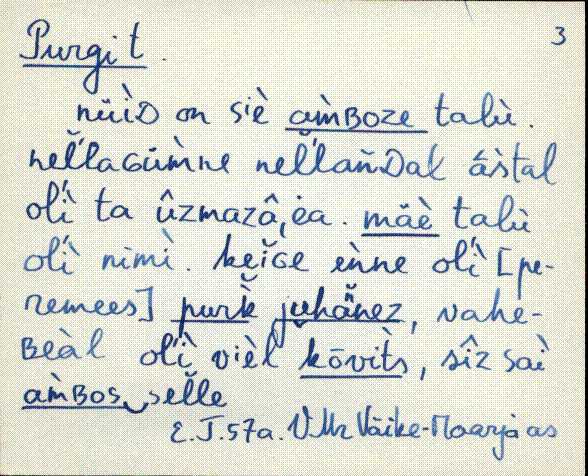 Purgit. 3
nüìD on siè am̀ʙoze talù.
nel̆'laɢüm̀ne nel̆'lañDal âs̀tal
ol'ì ta ûzmazâ, èa. mäè talù
ol'ì nimì. keĭɢe ènne ol'ì [pe-
remees] purk̆ juhänez, vahe-
ʙeàl ol'ì vièl kōvit̀s, sîz saì
am̀ʙos selle
E.J. 57a. V.Mr Väike-Maarja as